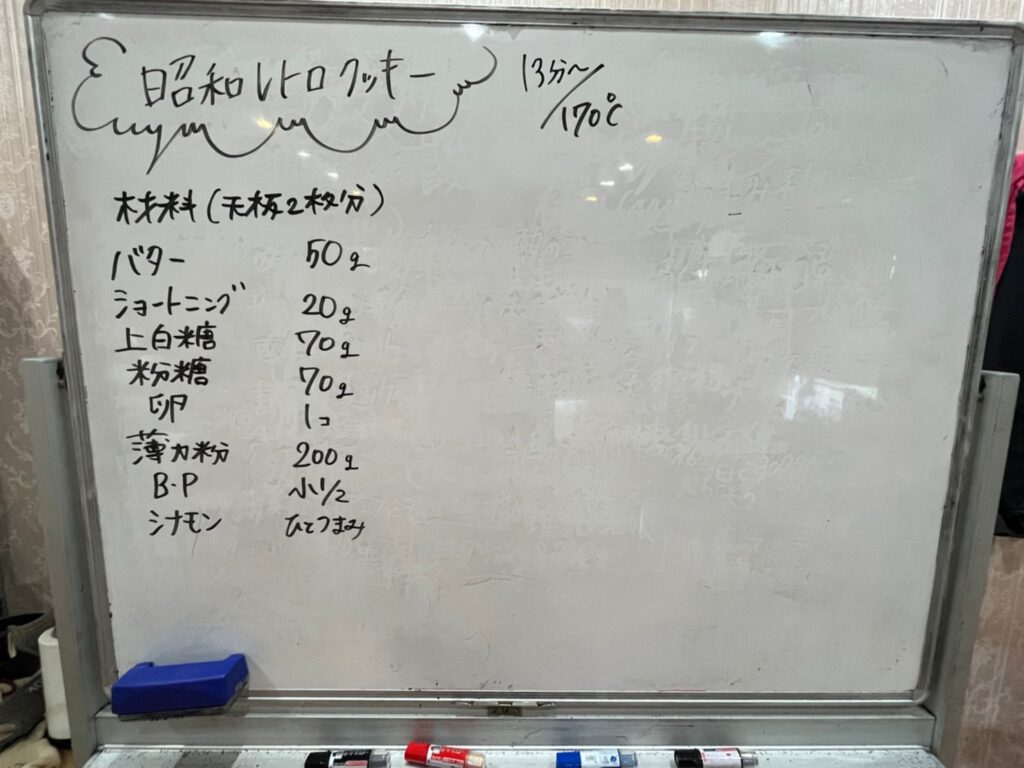 昭和レトロクッキー
13分〜/170℃
材料(天板2枚分)
バター 50g
ショートニング 20g
上白糖 70g
粉糖 70g
卵 1コ
薄力粉 200g
B・P 小1/2
シナモン ひとつまみ